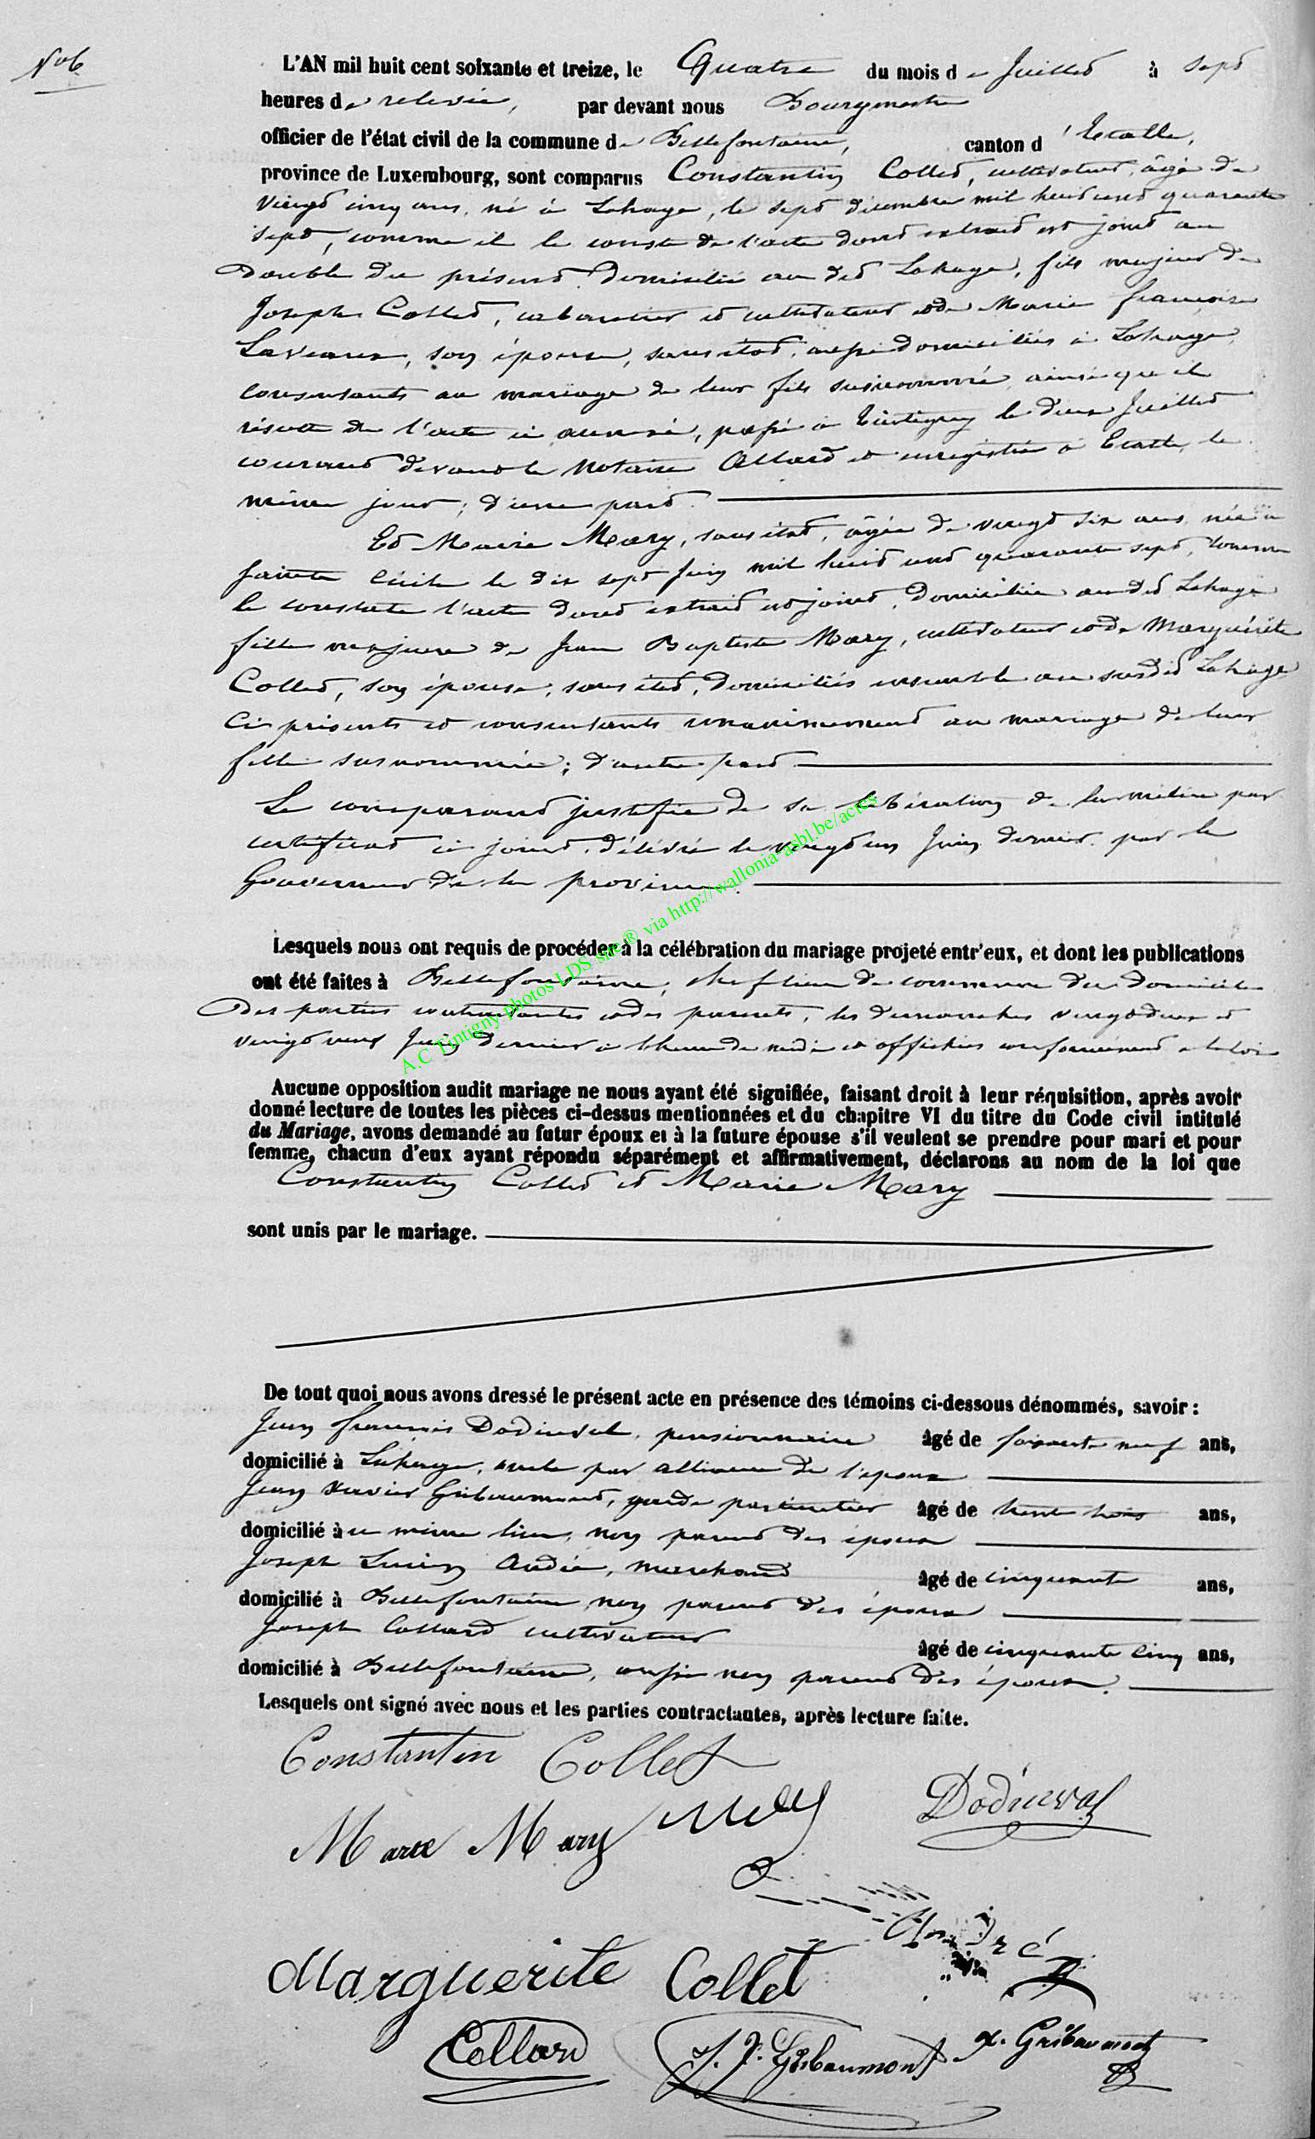 No 6
L'AN mil huit cent soixante et treize, le Quatre du mois de Juillet à Sept
heures de relevée, par devant nous Bourgmestre
officier de l'état civil de la commune de Bellefontaine, canton d'Etalle,
province de Luxembourg, sont comparus Constantin Collet, cultivateur, âgé de
vingt cinq ans, né à Lahage, le sept décembre mil huit cent quarante
sept, comme il le conste de l'acte dont extrait est joint au
double du présent. Domicilié au dit Lahage, fils majeur de
Joseph Collet, cabaretier et cultivateur et de Marie françoise
son épouse, sans état, aussi domiciliés à Lahage,
consentants au mariage de leur fils susnommé ainsi qu'il
résulte de l'acte ci annexé, passé à Tintigny le deux Juillet
courant devant le Notaire Allard et enregistré à Etalle le
même jour; d'une part.
Et Marie Mary, sans état, âgée de vingt six ans, née à
Sainte Cécile le dix sept Juin mil huit cent quarante sept, comme
le constate l'acte dont extrait est joint, domiciliée au dit Lahage
fille majeure de Jean Baptiste Mary, cultivateur et de Marguérite
Collet, son épouse, sans état, domiciliés ensemble au susdit Lahage
Ci présents et consentants unanimement au mariage de leur
fille susnommée; d'autre part
Le comparant justifie de sa libération de la milice par
certificat ci joint, délivré le vingt un Juin dernier par le
Gouverneur de la province.
Lesquels nous ont requis de procéder à la célébration du mariage projeté entr'eux, et dont les publications
ont été faites à Bellefontaine, chef lieu de commune du domicile
des parties contractantes et des parents, les dimanches vingt deux et
vingt neuf Juin dernier à l'heure de midi et affichées conformément à la loi
Aucune opposition audit mariage ne nous ayant été signifiée, faisant droit à leur réquisition, après avoir
donné lecture de toutes les pièces ci-dessus mentionnées et du chapitre VI du titre du Code civil intitulé
du Mariage, avons demandé au futur époux et à la future épouse s'il veulent se prendre pour mari et pour
femme, chacun d'eux ayant répondu séparément et affirmativement, déclarons au nom de la loi que
Constantin Collet et Marie Mary
sont unis par le mariage.
De tout quoi nous avons dressé le présent acte en présence des témoins ci-dessous dénommés, savoir :
Jean françois Dodinval, pensionnaire âgé de soixante neuf ans,
domicilié à Lahage, oncle par alliance de l'époux
Jean Xavier Gribaumont, garde particulier âgé de trente trois ans,
domicilié à ce même lieu, non parent des époux
Joseph Lucien André, marchand âgé de cinquante ans,
domicilié à Bellefontaine, non parent des époux
Joseph Collard cultivateur âgé de cinquante cinq ans,
domicilié à Bellefontaine, aussi non parent des époux.
Lesquels ont signé avec nous et les parties contractantes, après lecture faite.
Constantin Collet
Marie Mary Dodinval
André
Marguerite Collet
Collard J. J. Gribaumont x. Gribaumont
A.C Tintigny photos LDS site ® via http://wallonia-asbl.be/actes